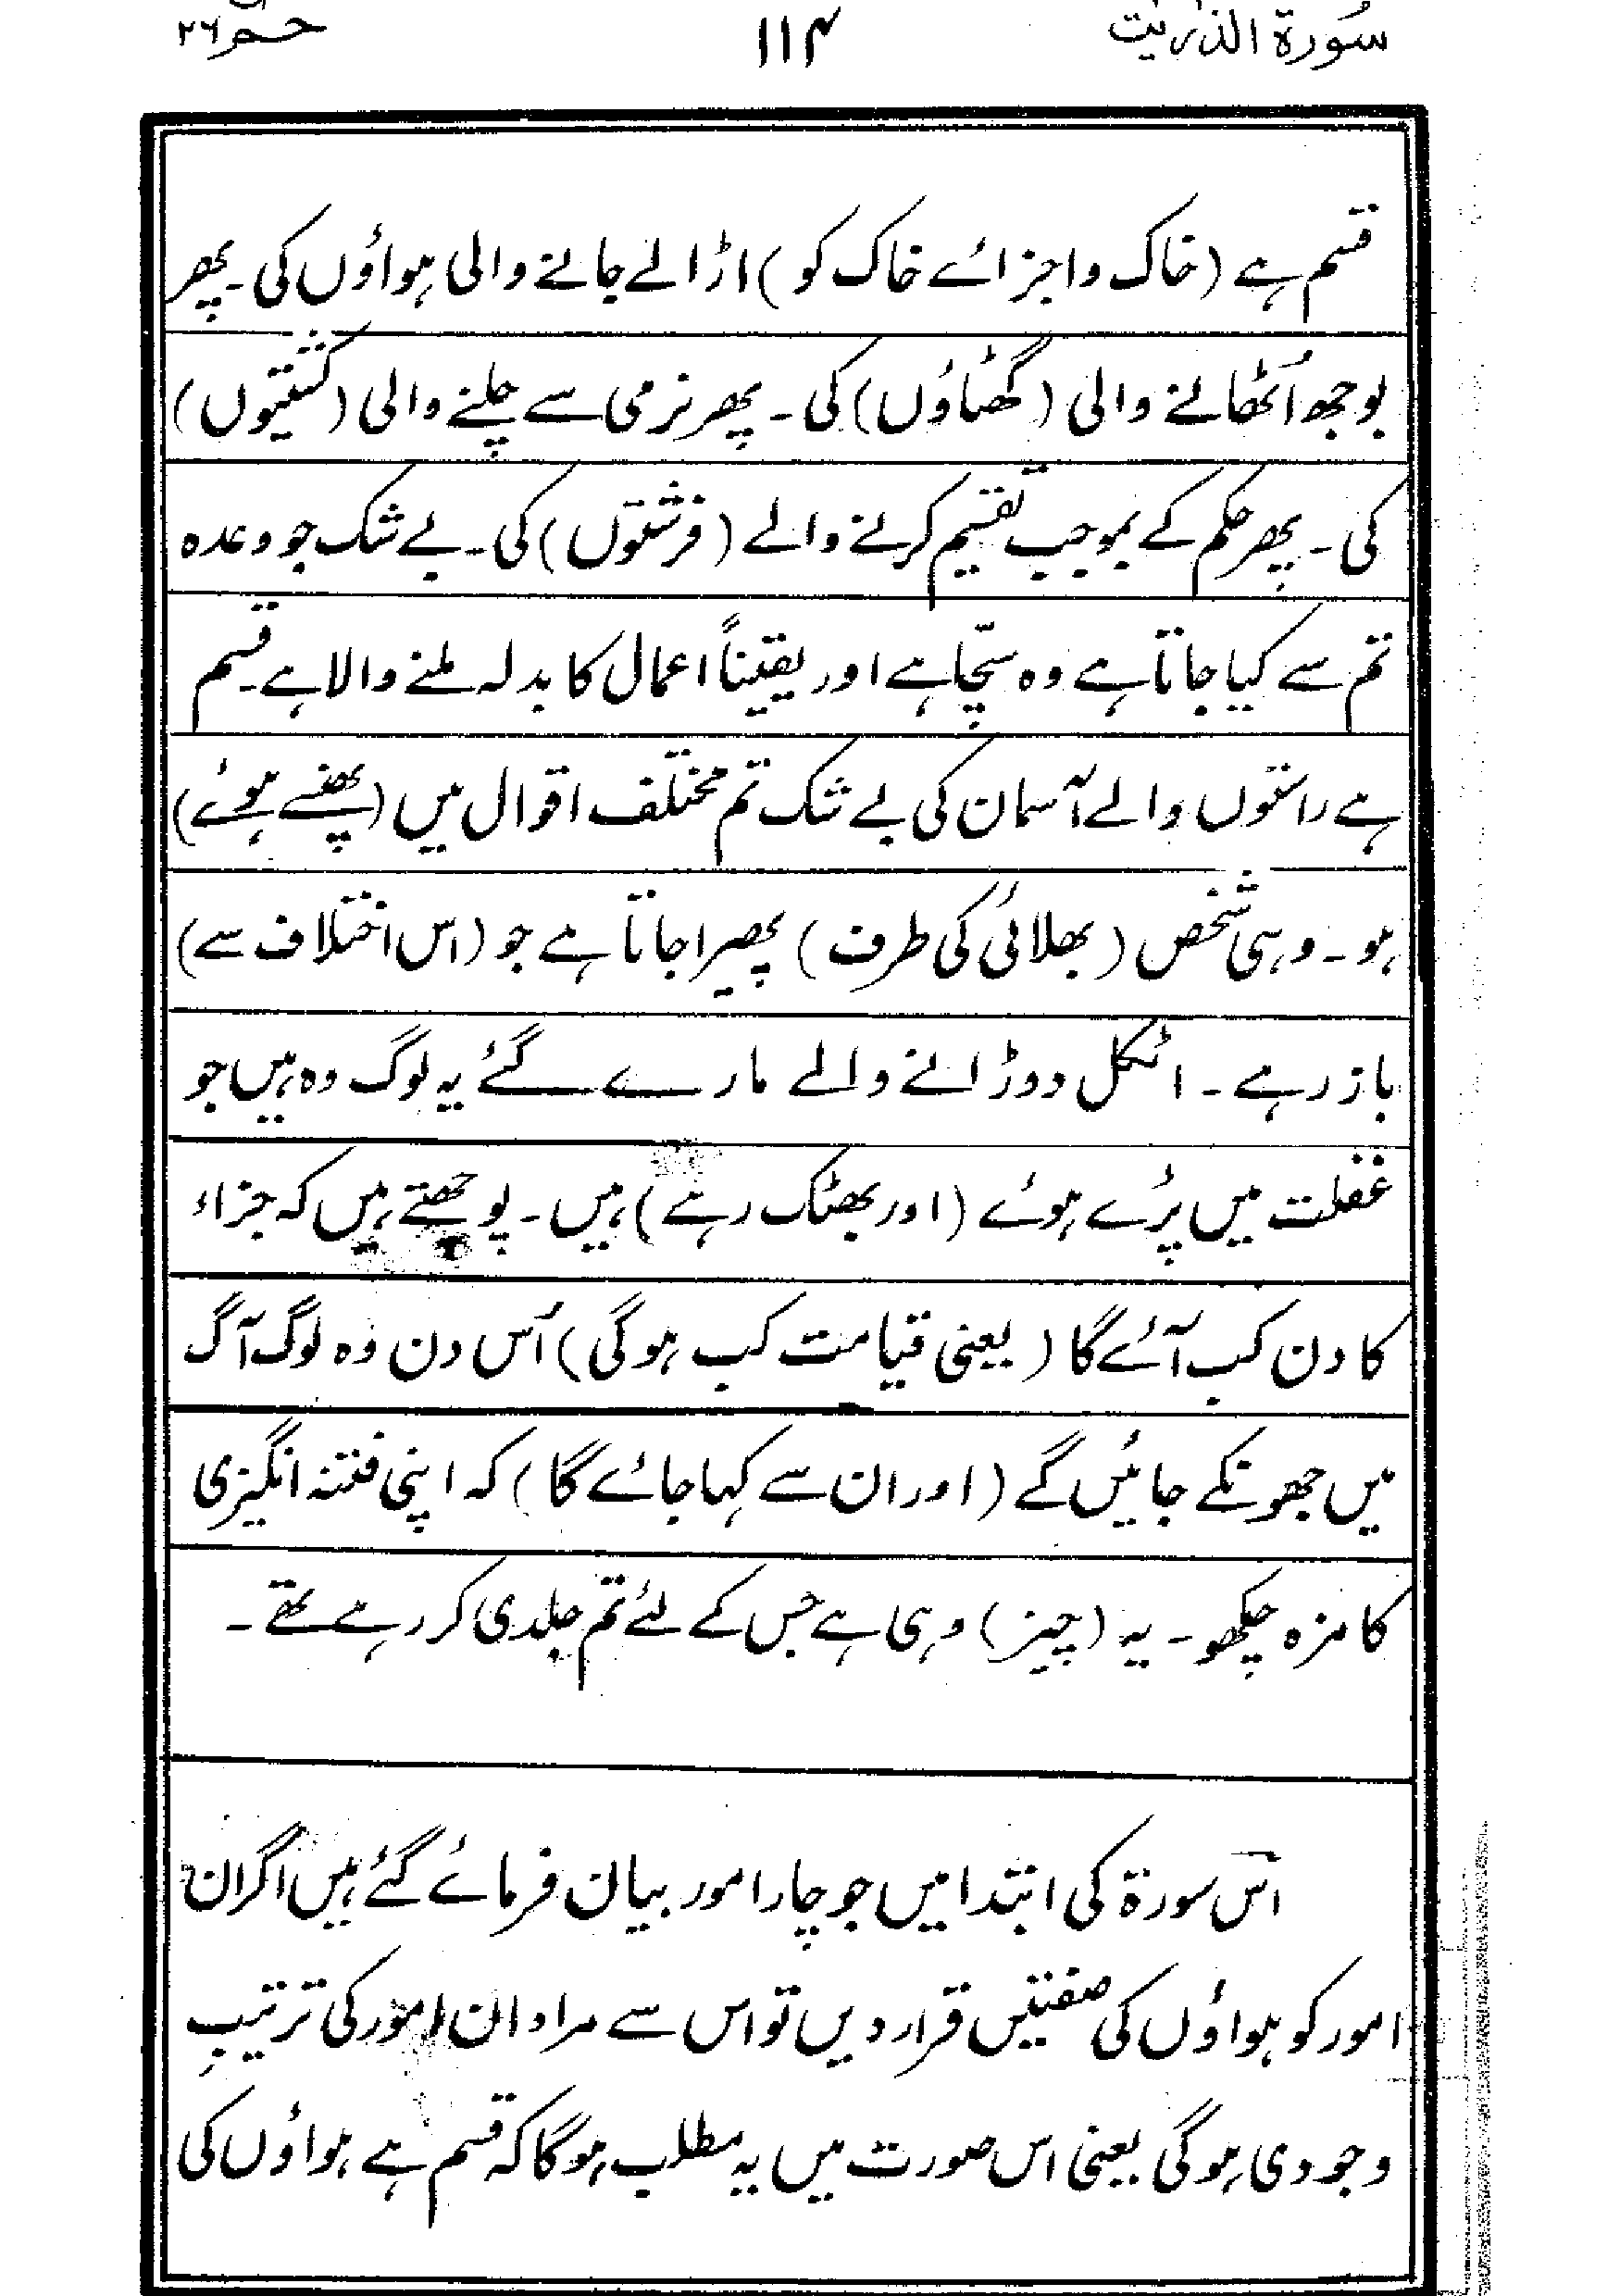 سُورۃ الذٰریٰت ۱۱۴ حٰمٓ ۲۶
قسم ہے (خاک واجزائے خاک کو) اڑالے جانے والی ہواؤں کی۔ پھر
بوجھ اُٹھانے والی (گھٹاؤں) کی۔ پھر نرمی سے چلنے والی (کشتیوں)
کی۔ پھر حکم کے بموجب تقسیم کرنے والے (فرشتوں) کی۔ بے شک جو وعدہ
تم سے کیا جاتا ہے وہ سچّا ہے اور یقیناً اعمال کا بدلہ ملنے والا ہے۔ قسم
ہے راستوں والے آسمان کی بے شک تم مختلف اقوال میں (پھنسے ہوئے)
ہو۔ وہی شخص (بھلائی کی طرف) پھیرا جاتا ہے جو (اس اختلاف سے)
باز رہے۔ اٹکل دوڑانے والے مارے گئے یہ لوگ وہ ہیں جو
غفلت میں پڑے ہوئے (اور بھٹک رہے) ہیں۔ پوچھتے ہیں کہ جزاء
کا دن کب آئے گا (یعنی قیامت کب ہوگی) اُس دن وہ لوگ آگ
میں جھونکے جائیں گے (اور ان سے کہا جائے گا) کہ اپنی فتنہ انگیزی
کا مزہ چکھو۔ یہ (چیز) وہی ہے جس کے لئے تم جلدی کر رہے تھے۔
اس سورۃ کی ابتدا میں جو چار امور بیان فرمائے گئے ہیں اگر ان
امور کو ہواؤں کی صفتیں قرار دیں تو اس سے مراد ان امور کی ترتیبِ
وجودی ہوگی یعنی اس صورت میں یہ مطلب ہوگا کہ قسم ہے ہواؤں کی